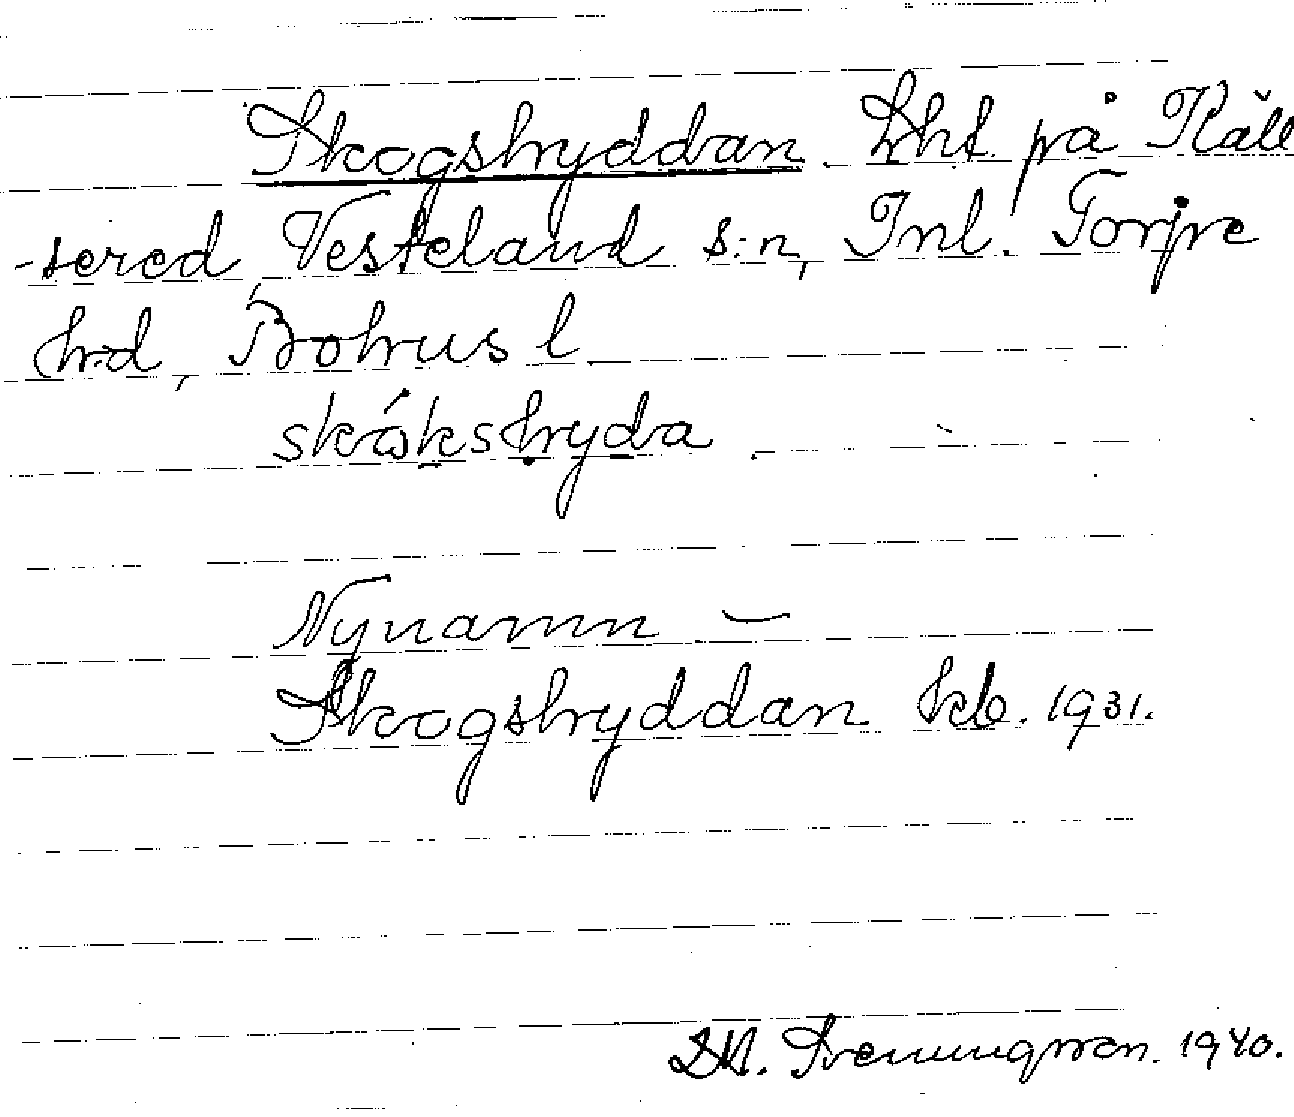 Skogshyddan. Lht på Käll
-sered Vesteland s:n, Inl. Torpe
hrd, Bohus l.
skókshyda
Nynamn –
Skogshyddan kb. 1931.
Svenungsson. 1940.